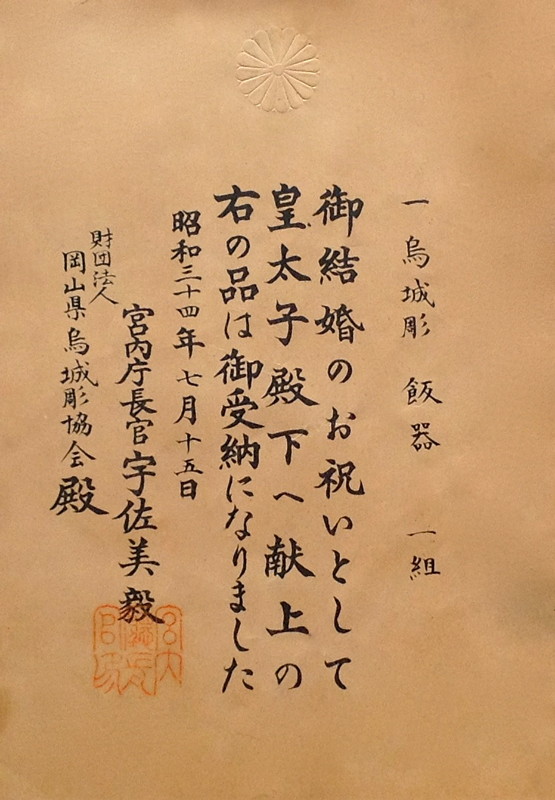 一 烏城彫 飯器 一組
御結婚のお祝いとして
皇太子殿下へ献上の
右の品は御受納になりました
昭和三十四年七月十五日
宮内庁長官宇佐美毅
財団法人
岡山県烏城彫協会殿